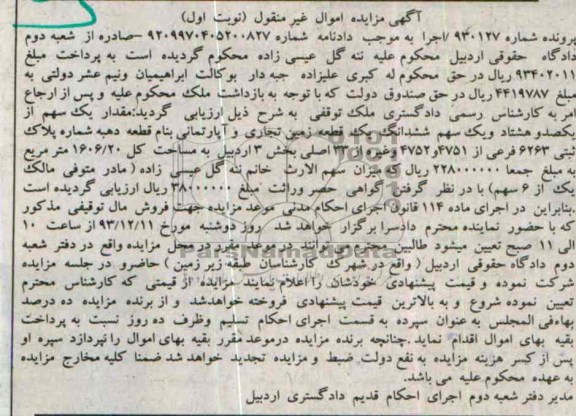 آگهی مزایده اموال غیر منقول (نوبت اول)
پرونده شماره ۹۳۰۱۲۷ /اجرا به موجب دادنامه شماره ۹۲۰۹۹۷۰۴۰۵۲۰۰۸۲۷ –صادره از شعبه دوم
دادگاه حقوقی اردبیل محکوم علیه ننه گل عیسی زاده محکوم گردیده است به پرداخت مبلغ
۹۳۴۰۲۰۱۱ ریال در حق محکوم له کبری علیزاده جبه دار بوکالت ابراهیمیان ونیم عشر دولتی به
مبلغ ۴۴۱۹۷۸۷ ریال در حق صندوق دولت که با توجه به بازداشت ملک محکوم علیه و پس از ارجاع
امر به کارشناس رسمی دادگستری ملک توقفی به شرح ذیل ارزیابی گردید:مقدار یک سهم از
یکصدو هشتاد ویک سهم ششدانگ یک قطعه زمین تجاری و آپارتمانی بنام قطعه دهبه شماره پلاک
ثبتی ۶۲۶۳ فرعی از ۴۷۵۱و۴۷۵۲ وغیره از ۳۳ اصلی بخش ۳ اردبیل به مساحت کل ۱۶۰۶/۲۰ متر مربع
به مبلغ جمعا ۲۲۸۰۰۰۰۰۰ ریال که میزان سهم الارث خانم ننه گل عیسی زاده ( مادر متوفی مالک
یک از ۶ سهم) با در نظر گرفتن گواهی حصر وراثت مبلغ ۳۸۰۰۰۰۰۰ ریال ارزیابی گردیده است
.بنابراین در اجرای ماده ۱۱۴ قانون اجرای احکام مدنی موعد مزایده جهت فروش مال توقیفی مذکور
که با حضور نماینده محترم دادسرا برگزار خواهد شد روز دوشنبه مورخ ۹۳/۱۲/۱۱ از ساعت ۱۰
الی ۱۱ صبح تعیین میشود طالبین میتوانند در موعد مقرر در محل مزایده واقع در دفتر شعبه
دوم دادگاه حقوقی اردبیل ( واقع در شهرک کارشناسان طبقه زیر زمین ) حاضرو در جلسه مزایده
شرکت نموده و قیمت پیشنهادی خودشان را اعلام نمایند مزایده از قیمتی که کارشناس محترم
تعیین نموده شروع و به بالاترین قیمت پیشنهادی فروخته خواهدشد و از برنده مزایده ده درصد
بهاءفی المجلس به عنوان سپرده به قسمت اجرای احکام تسلیم وظرف ده روز نسبت به پرداخت
بقیه بهای اموال اقدام نماید.چنانچه برنده مزایده درموعد مقرر بقیه بهای اموال را نپردازد سپره او
پس از کسر هزینه مزایده به نفع دولت ضبط و مزایده تجدید خواهد شد ضمنا کلیه مخارج مزایده
به عهده محکوم علیه می باشد.
مدیر دفتر شعبه دوم اجرای احکام قدیم دادگستری اردبیل